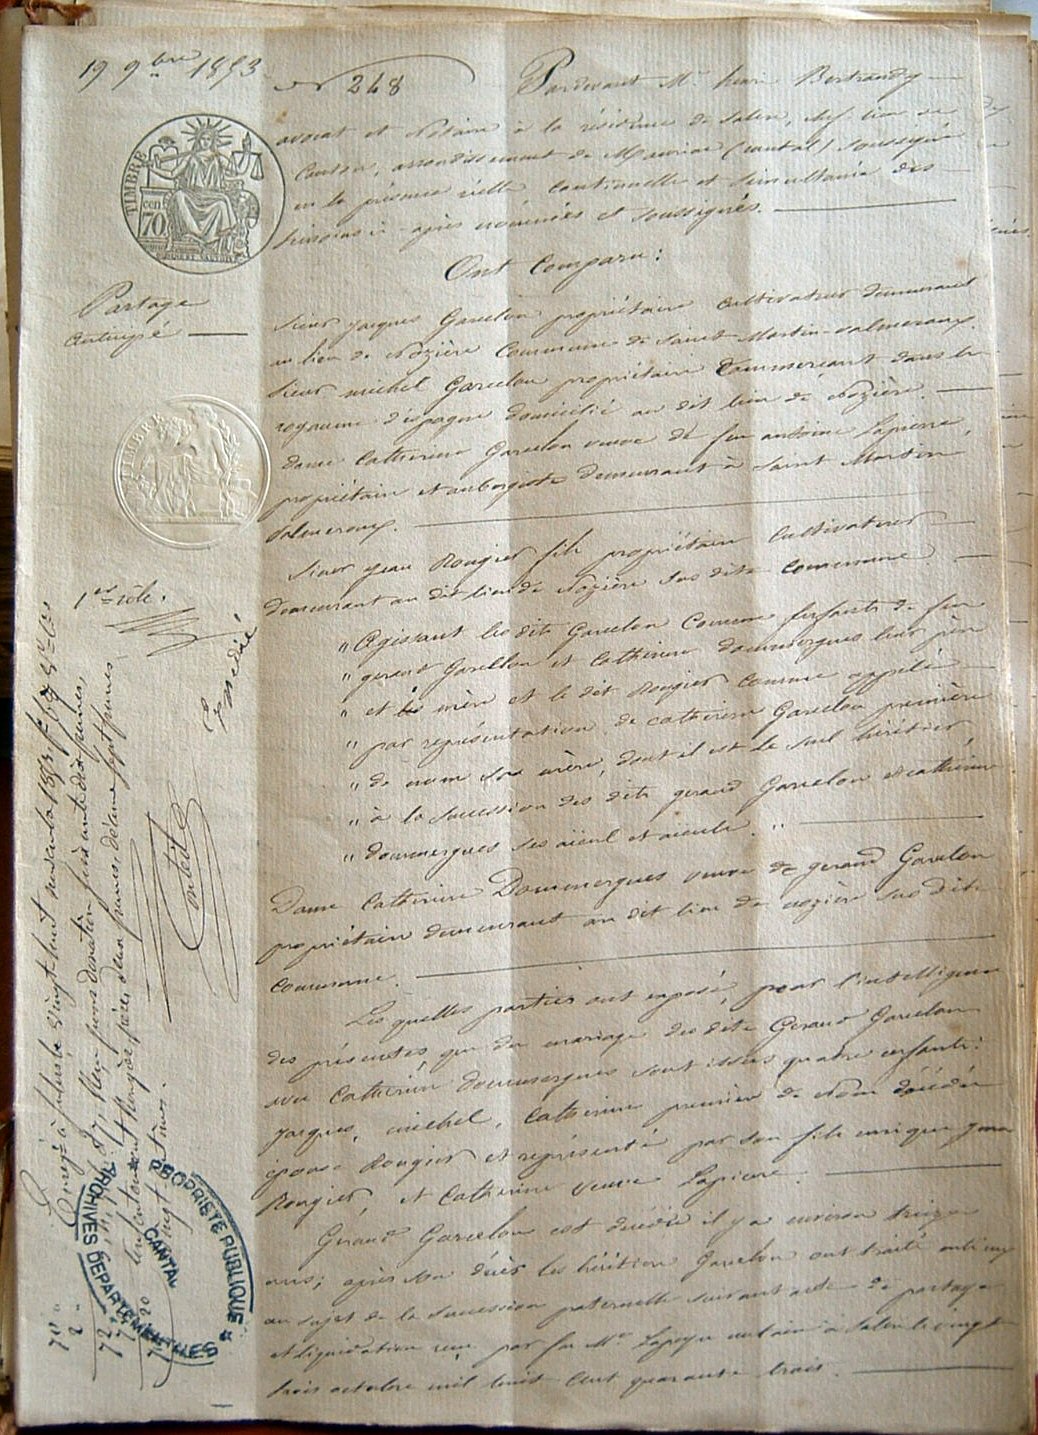 19 9bre 1853
N° 248
Pardevant Me henri Bertrandy
avocat et Notaire à la résidence de Salers, chef lieu de
Canton, arrondissement de Mauriac (Cantal) soussigné
en la présence réelle continuelle et simultanée des
témoins ci-après nommés et soussignés.
TIMBRE
cen
70
Partage
anticipé
Ont Comparu :
Sieur jacques Garcelon propriétaire cultivateur demeurant
au lieu de Nozière Commune de Saint Martin-valmeroux.
Sieur michel Garcelon propriétaire Commerçant dans le
royaume d'espagne domicilié au dit lieu de Nozière.
dame Catherine Garcelon veuve de feu antoine Lapierre,
propriétaire et aubergiste demeurant à Saint Martin
valmeroux.
TIMBRE
Sieur jean Rougier fils propriétaire Cultivateur
demeurant au dit lieu de Nozière sus dite commune
1er rôle.
Expédié
" Agissant les dits Garcelon Comme enfants de feu
" gerard Garcelon et Catherine doumergues leur père
" et mère et le dit Rougier comme appelé
" par représentation de catherine Garcelon première
" de nom sa mère, dont il est le seul héritier,
" à la succession des dits gerard Garcelon et catherine
" doumergues ses aïeul et aïeule. "
Dame Catherine Doumergues veuve de gerard Garcelon
propriétaire demeurant au dit lieu de nozière sus dite
commune.
Les quelles parties ont exposé, pour l'intelligence
des présentes, que du mariage des dits Gerard Garcelon
avec Catherine doumergues sont issus quatre enfants :
jacques, michel, Catherine première de nom décédée
épouse Rougier et représentée par son fils unique jean
Rougier, et Catherine veuve Lapierre.
Gerard Garcelon est décédé il y a environ treize
ans; après son décès les héritiers Garcelon ont traité entre eux
au sujet de la succession paternelle suivant acte de partage
et liquidation reçu par feu Me Lapeyre notaire à Salers le vingt
trois octobre mil huit Cent quarante trois.
Enregé à Salers le vingt huit
PROPRIETE PUBLIQUE
ARCHIVES DEPARTEMENTALES
CANTAL